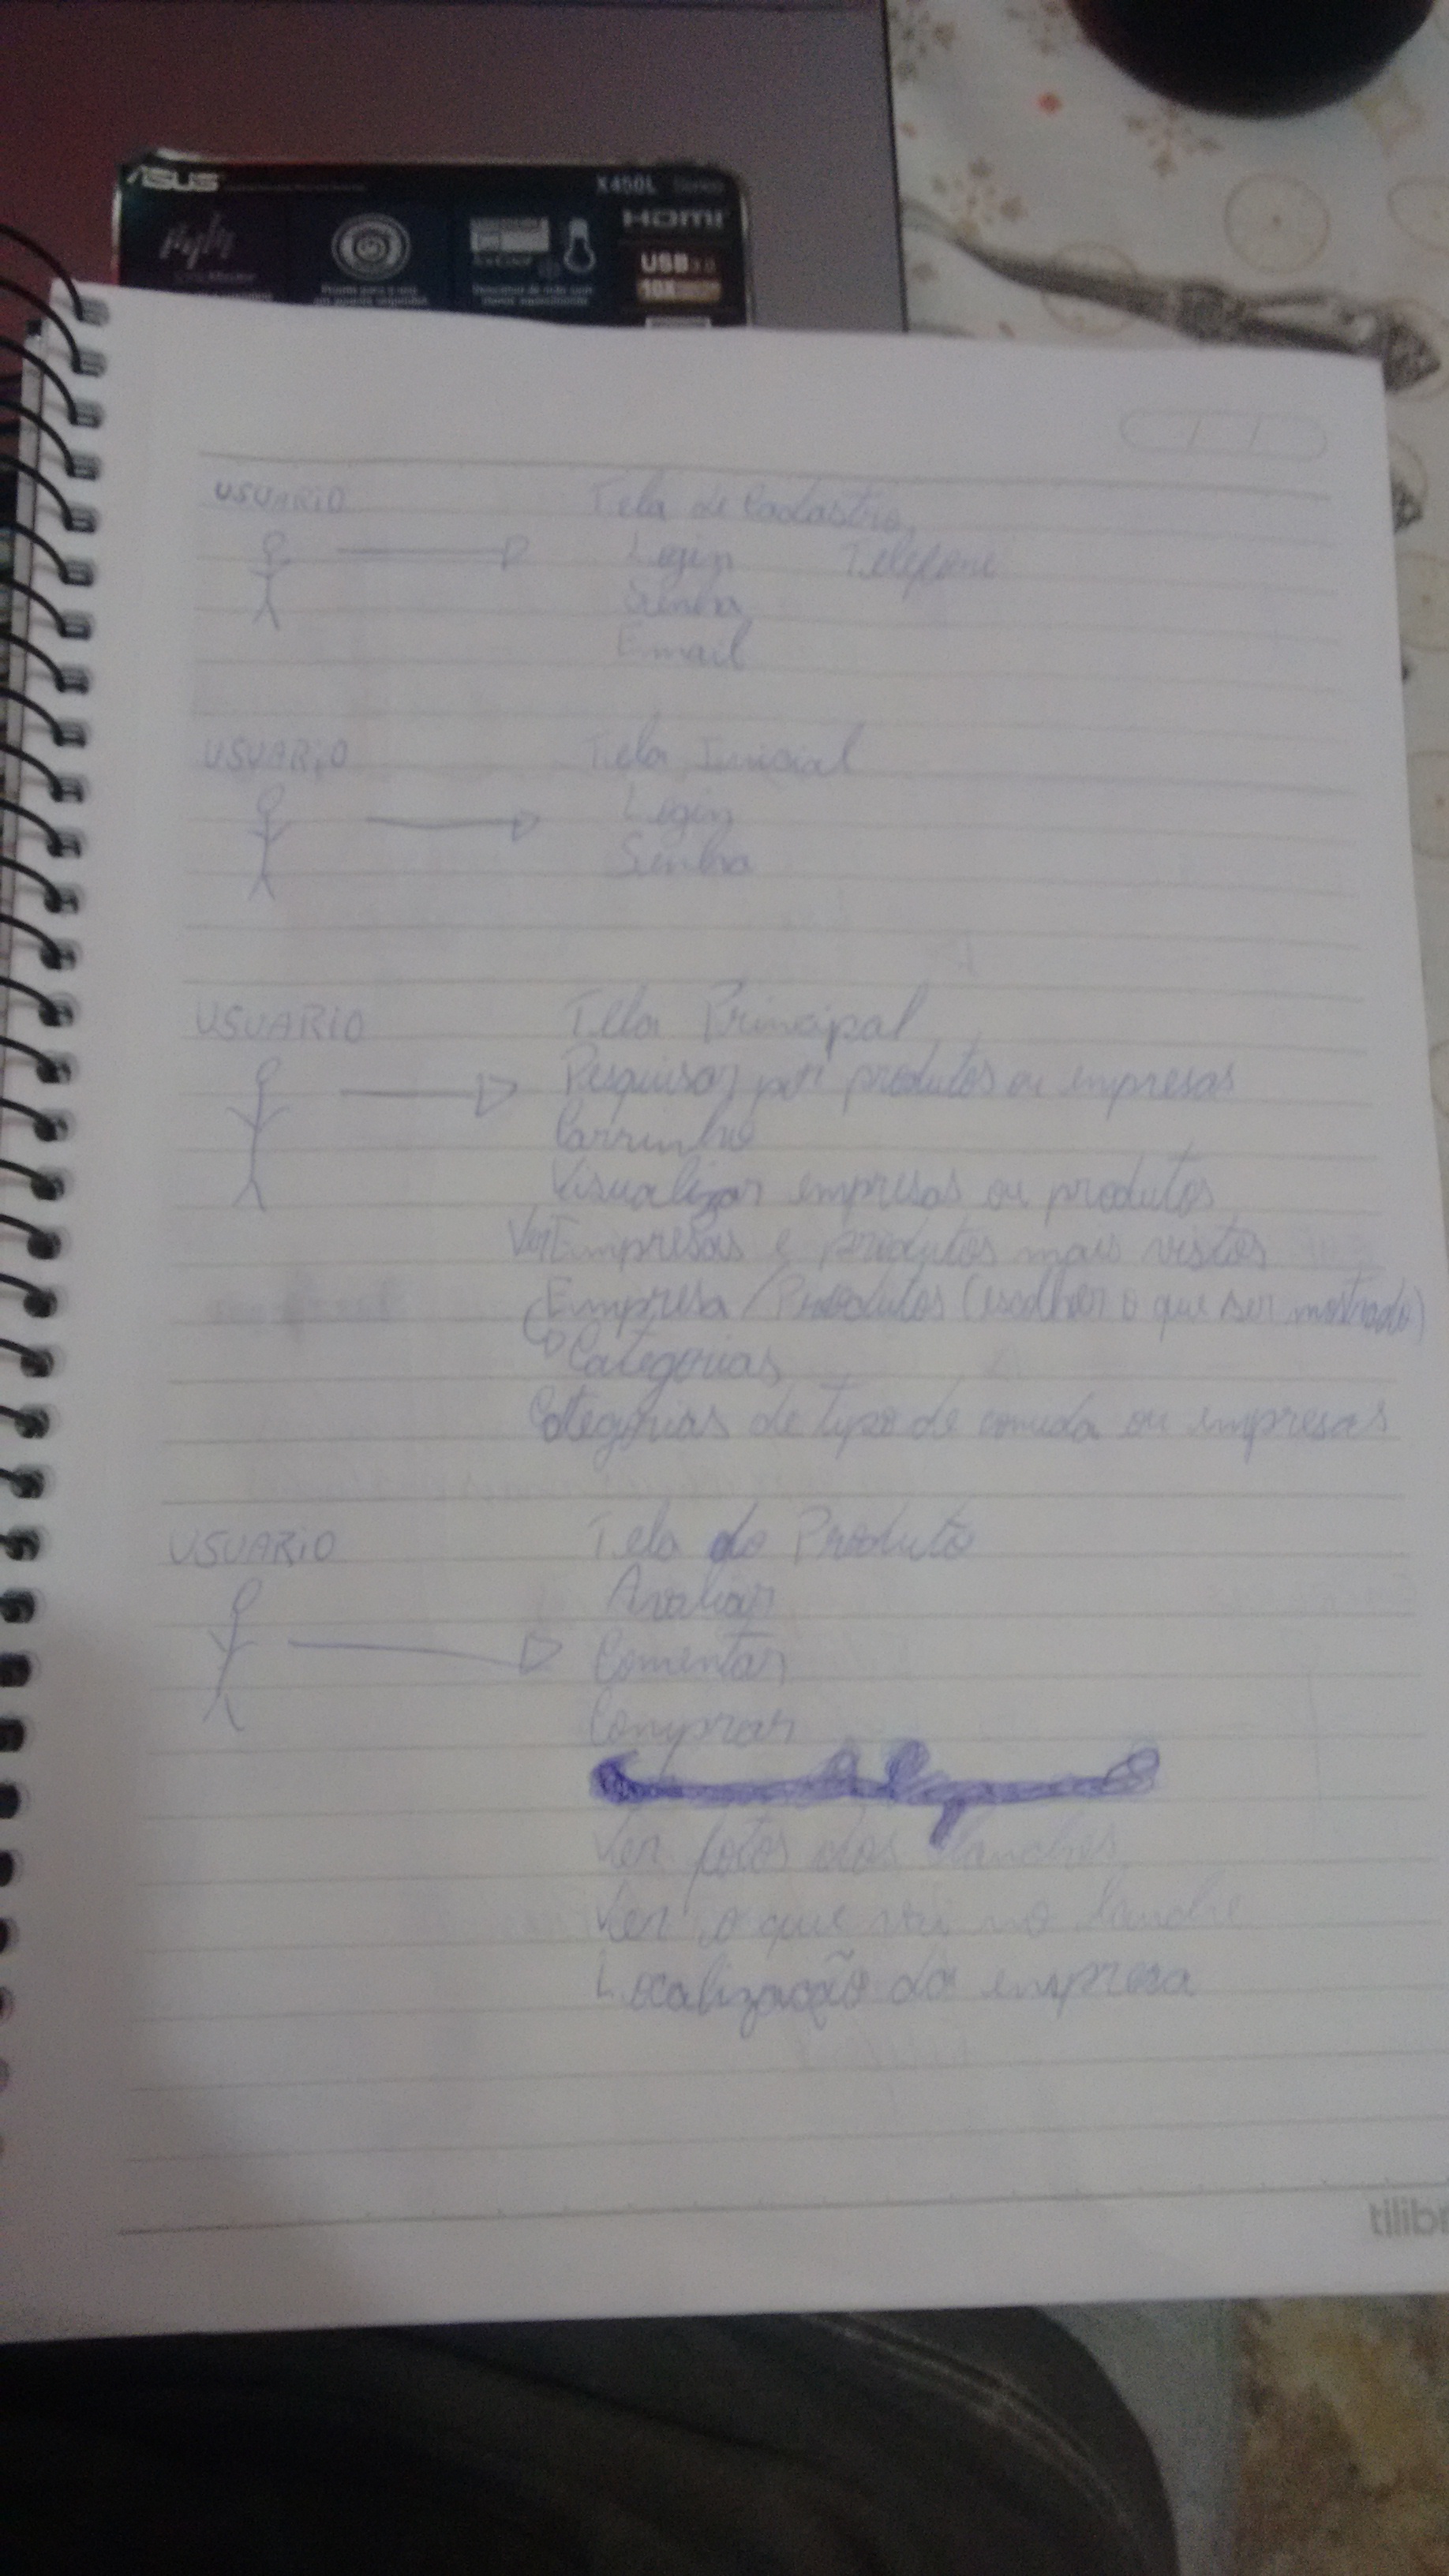 ASUS
X450L Series
HDMI
USB 3.0
10X
USUARIO Tela de Cadastro
Login Telefone
Senha
Email
USUARIO Tela Inicial
Login
Senha
USUARIO Tela Principal
Pesquisar por produtos ou empresas
Carrinho
Visualizar empresas ou produtos
Ver Empresas e produtos mais vistos
Empresa/Produtos (escolher o que ser mostrado)
Categorias
Categorias de tipo de comida ou empresas
USUARIO Tela do Produto
Avaliar
Comentar
Comprar
Ver fotos dos lanches
Ver o que vem no lanche
Localização da empresa
tilibr